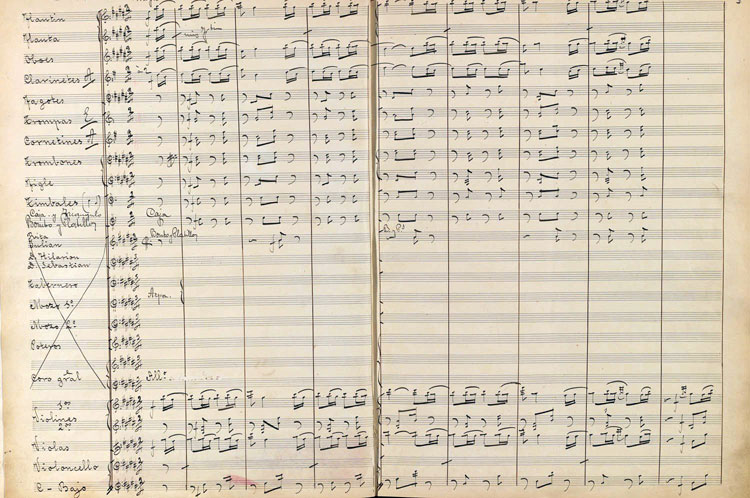 Flautin
Flauta
Oboes
Clarinetes A
Fagotes
Trompas E
Cornetines A
Trombones
Figle
Timbales
Caja y Triangulo Caja
Bombo y Platillos
Rita Bombo y Platillos
Julian
D. Hilarion
D. Sebastian
Tabernero
Arpa.
Mozo 1º
Mozo 2º
Porteros
Coro gral All.º
1os
Violines
2os
Violas
Violoncello
C-Bajo